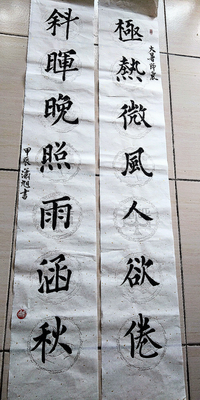 大暑即景
極熱微風人欲倦
斜暉晚照雨涵秋
甲辰瀟旭書